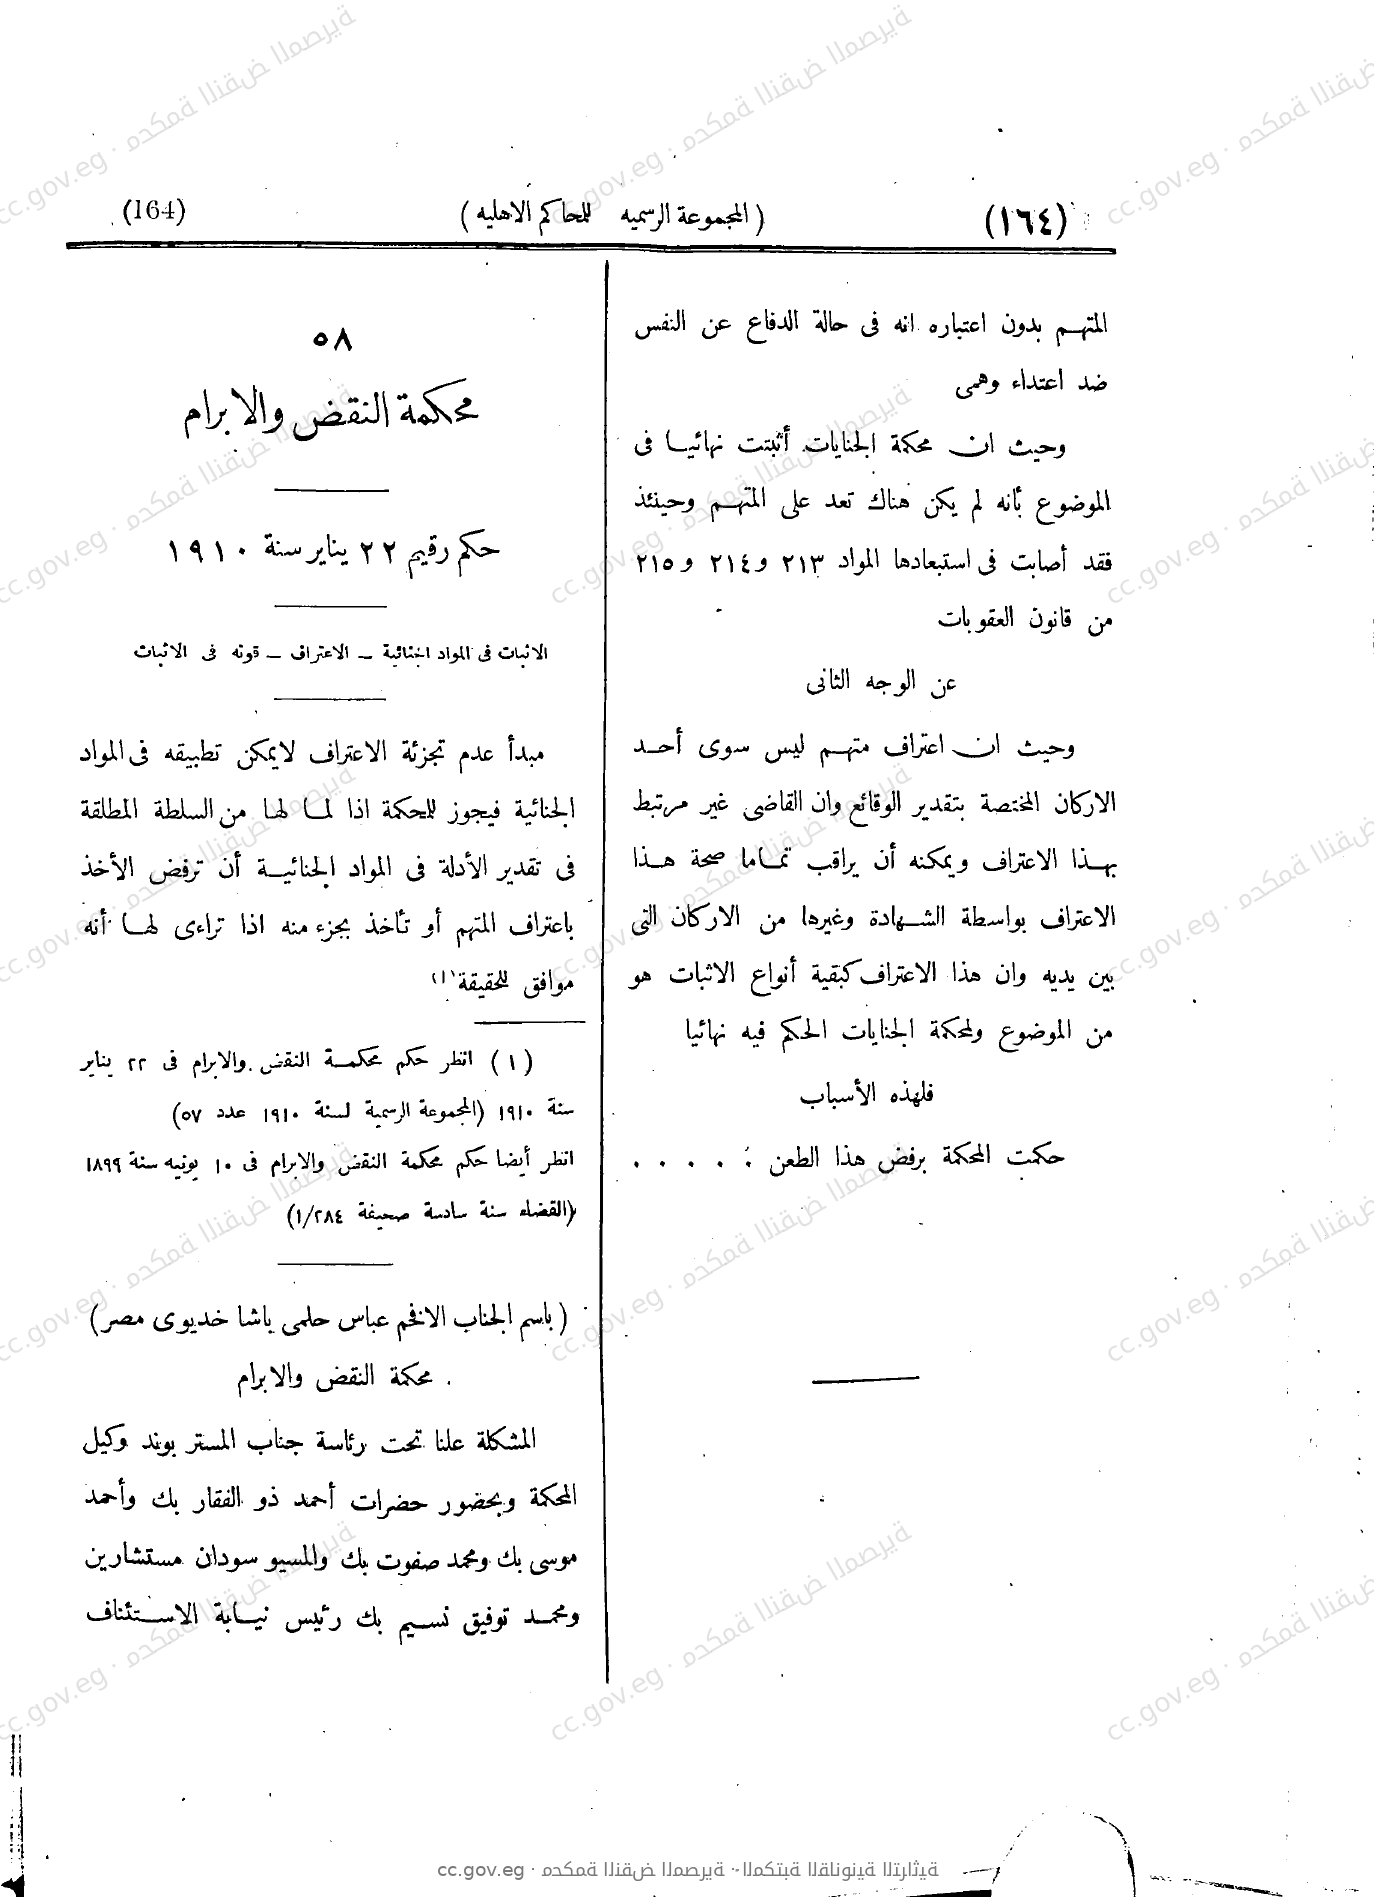 (١٦٤) ( المجموعة الرسميه للمحاكم الاهليه ) (164)
المتهم بدون اعتباره انه فى حالة الدفاع عن النفس
ضد اعتداء وهمى
وحيث ان محكمة الجنايات أثبتت نهائيا فى
الموضوع بأنه لم يكن هناك تعد على المتهم وحينئذ
فقد أصابت فى استبعادها المواد ٢١٣ و٢١٤ و٢١٥
من قانون العقوبات
عن الوجه الثانى
وحيث ان اعتراف متهم ليس سوى أحد
الاركان المختصة بتقدير الوقائع وان القاضى غير مرتبط
بهذا الاعتراف ويمكنه أن يراقب تماما صحة هذا
الاعتراف بواسطة الشهادة وغيرها من الاركان التى
بين يديه وان هذا الاعتراف كبقية أنواع الاثبات هو
من الموضوع ولمحكمة الجنايات الحكم فيه نهائيا
فلهذه الأسباب
حكمت المحكمة برفض هذا الطعن . . . . .
٥٨
محكمة النقض والابرام
حكم رقيم ٢٢ يناير سنة ١٩١٠
الاثبات فى المواد الجنائية – الاعتراف – قوته فى الاثبات
مبدأ عدم تجزئة الاعتراف لا يمكن تطبيقه فى المواد
الجنائية فيجوز للمحكمة اذا لما لها من السلطة المطلقة
فى تقدير الأدلة فى المواد الجنائية أن ترفض الأخذ
باعتراف المتهم أو تأخذ بجزء منه اذا تراءى لها أنه
موافق للحقيقة (١)
( ١ ) انظر حكم محكمة النقض والابرام فى ٢٢ يناير
سنة ١٩١٠ (المجموعة الرسمية لسنة ١٩١٠ عدد ٥٧)
انظر أيضا حكم محكمة النقض والابرام فى ١٠ يونيه سنة ١٨٩٩
(القضاء سنة سادسة صحيفة ١/٢٨٤)
( باسم الجناب الافخم عباس حلمى باشا خديوى مصر )
محكمة النقض والابرام
المشكلة علنا تحت رئاسة جناب المستر بوند وكيل
المحكمة وبحضور حضرات أحمد ذو الفقار بك وأحمد
موسى بك ومحمد صفوت بك والمسيو سودان مستشارين
ومحمد توفيق نسيم بك رئيس نيابة الاستئناف
cc.gov.eg · محكمة النقض المصرية · المكتبة القانونية التراثية